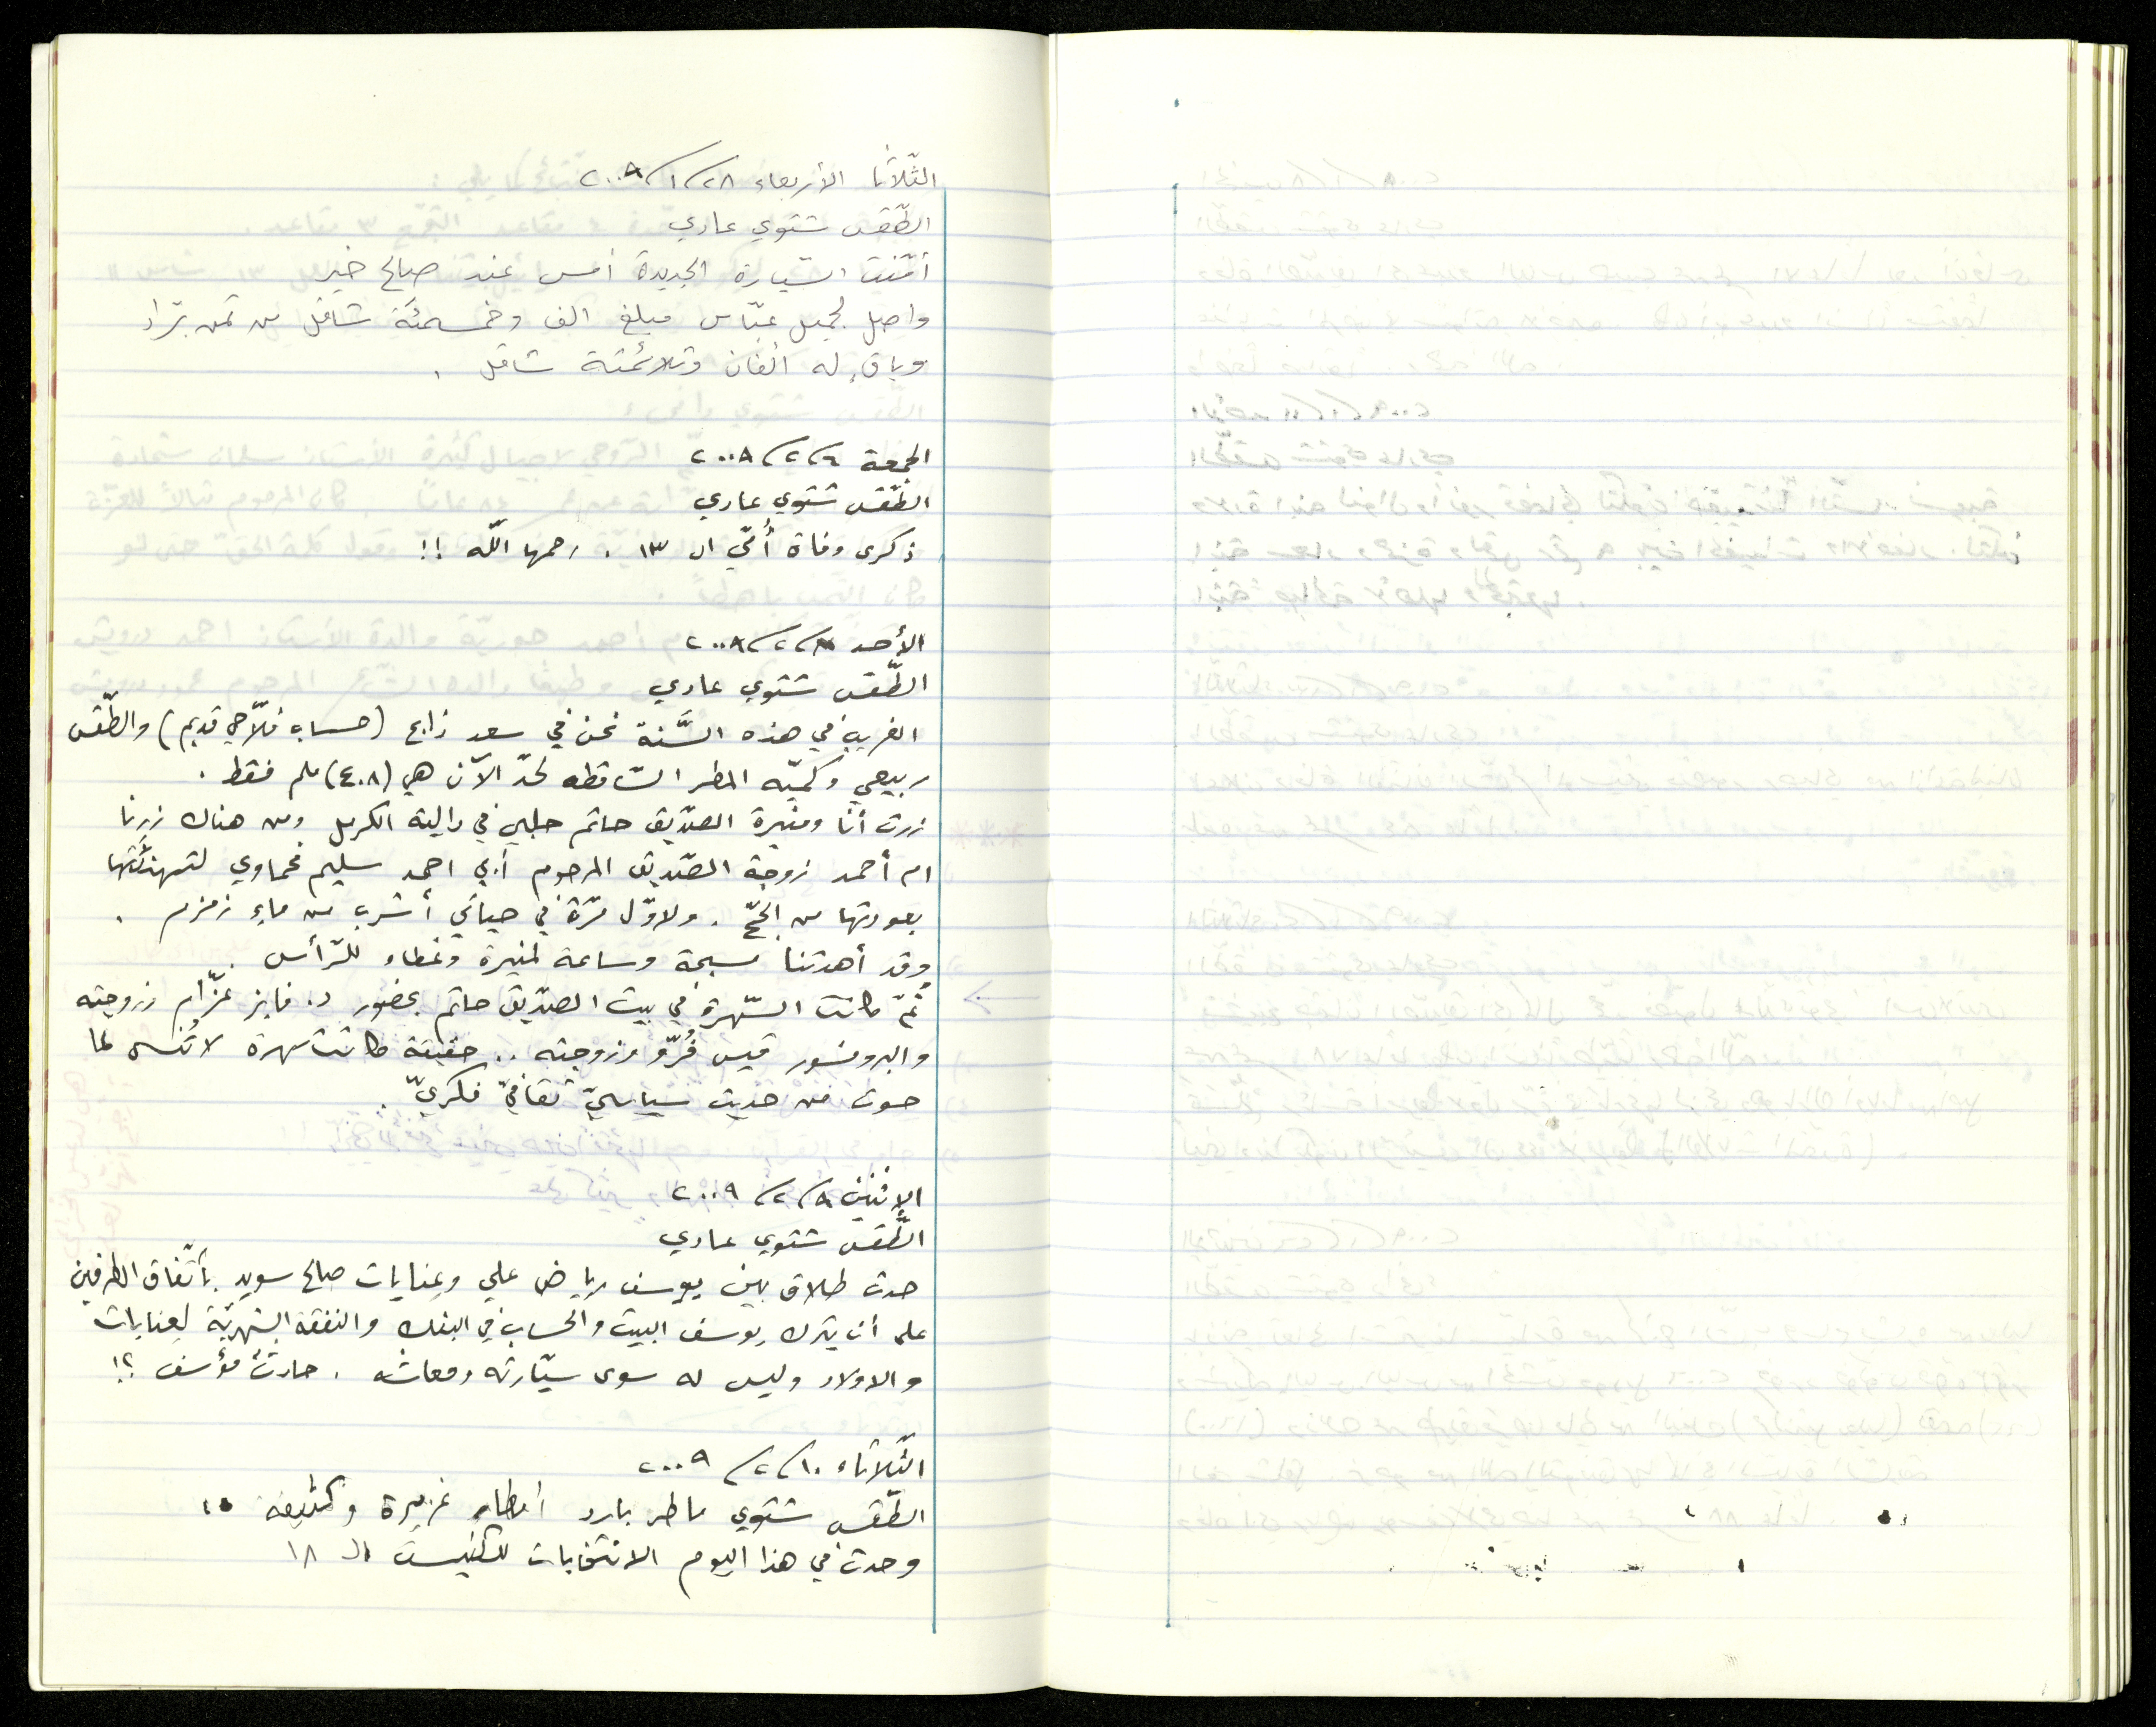 الثّلاثا الأربعاء ٢٨/١/٢٠٠٩
الطّقس شتوي عادي
أمّنت السّيارة الجديدة أمس عند صالح خير
واصل لجميل عبّاس مبلغ الف وخمسمئة شاقل من ثمن برّاد
وباقٍ له الفان وثلاثمئة شاقل .
الجمعة ٦/٢/٢٠٠٨
الطّقس شتوي عادي
ذكرى وفاة أُمّي ال ١٣ . رحمها اللّه !!
الأحد ٨/٢/٢٠٠٨
الطّقس شتوي عادي
الغريب في هذه السَّنة نحن في سعد ذابح (حساب فلاّحي قديم) والطّقس
ربيعي وكميّه المطر السّاقطه لحدّ الآن هي (٤٠٨) ملم فقط .
زرت أنا ومنيرة الصّديق حاتم حلبي في دالية الكرمل ومن هناك زرنا
ام أحمد زوجة الصّديق المرحوم أبي احمد سليم محماوي لتهنئتها
بعودتها من الحجّ . ولاوّل مرّة في حياتي أشرب من ماء زمزم .
وقد أهدتنا مسبحة وساعة لمنيرة وغطاء للرّأس .
ثمّ كانت السّهرة في بيت الصّديق حاتم بحضور د. فايز عزّام وزوجته
والبروفسور قيس فُرّو وزوجته .. حقيقة كانت سهرة لا تُنسى لما
حوت من حديث سياسيّ ثقافيّ فكريّ .
الإثنين ٩/٢/٢٠٠٩
الطّقس شتوي عادي
حدث طلاق بين يوسف رياض علي وعنايات صالح سويد بأتّفاق الطرفين
على أن يترك يوسف البيت والحساب في البنك والنفقة الشهريّة لعنايات
والاولاد وليس له سوى سيّارته ومعاشه . حادثٌ مؤسف ؟!
الثّلاثاء ١٠/٢/٢٠٠٩
الطّقس شتوي ماطر بارد أمطار غزيرة وكثيفة !!
وحدث في هذا اليوم الانتخابات للكنيست ال ١٨